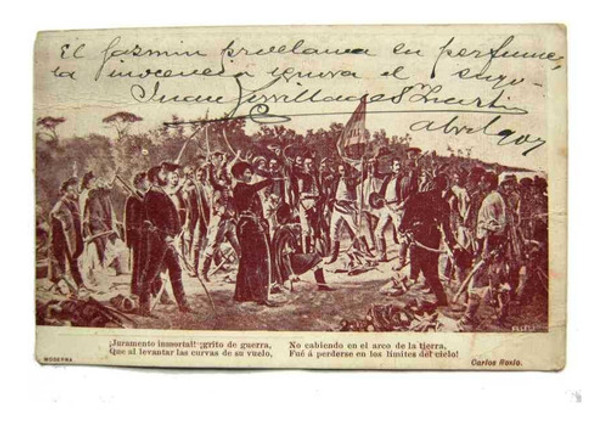 El Jasmin proclama su perfume,
la inocencia ignora el suyo-
Juan
abril 907
¡Juramento inmortal! ¡grito de guerra,
Que al levantar las curvas de su vuelo,
No cabiendo en el arco de la tierra,
Fué á perderse en los límites del cielo!
MODERNA
Carlos Roxlo.